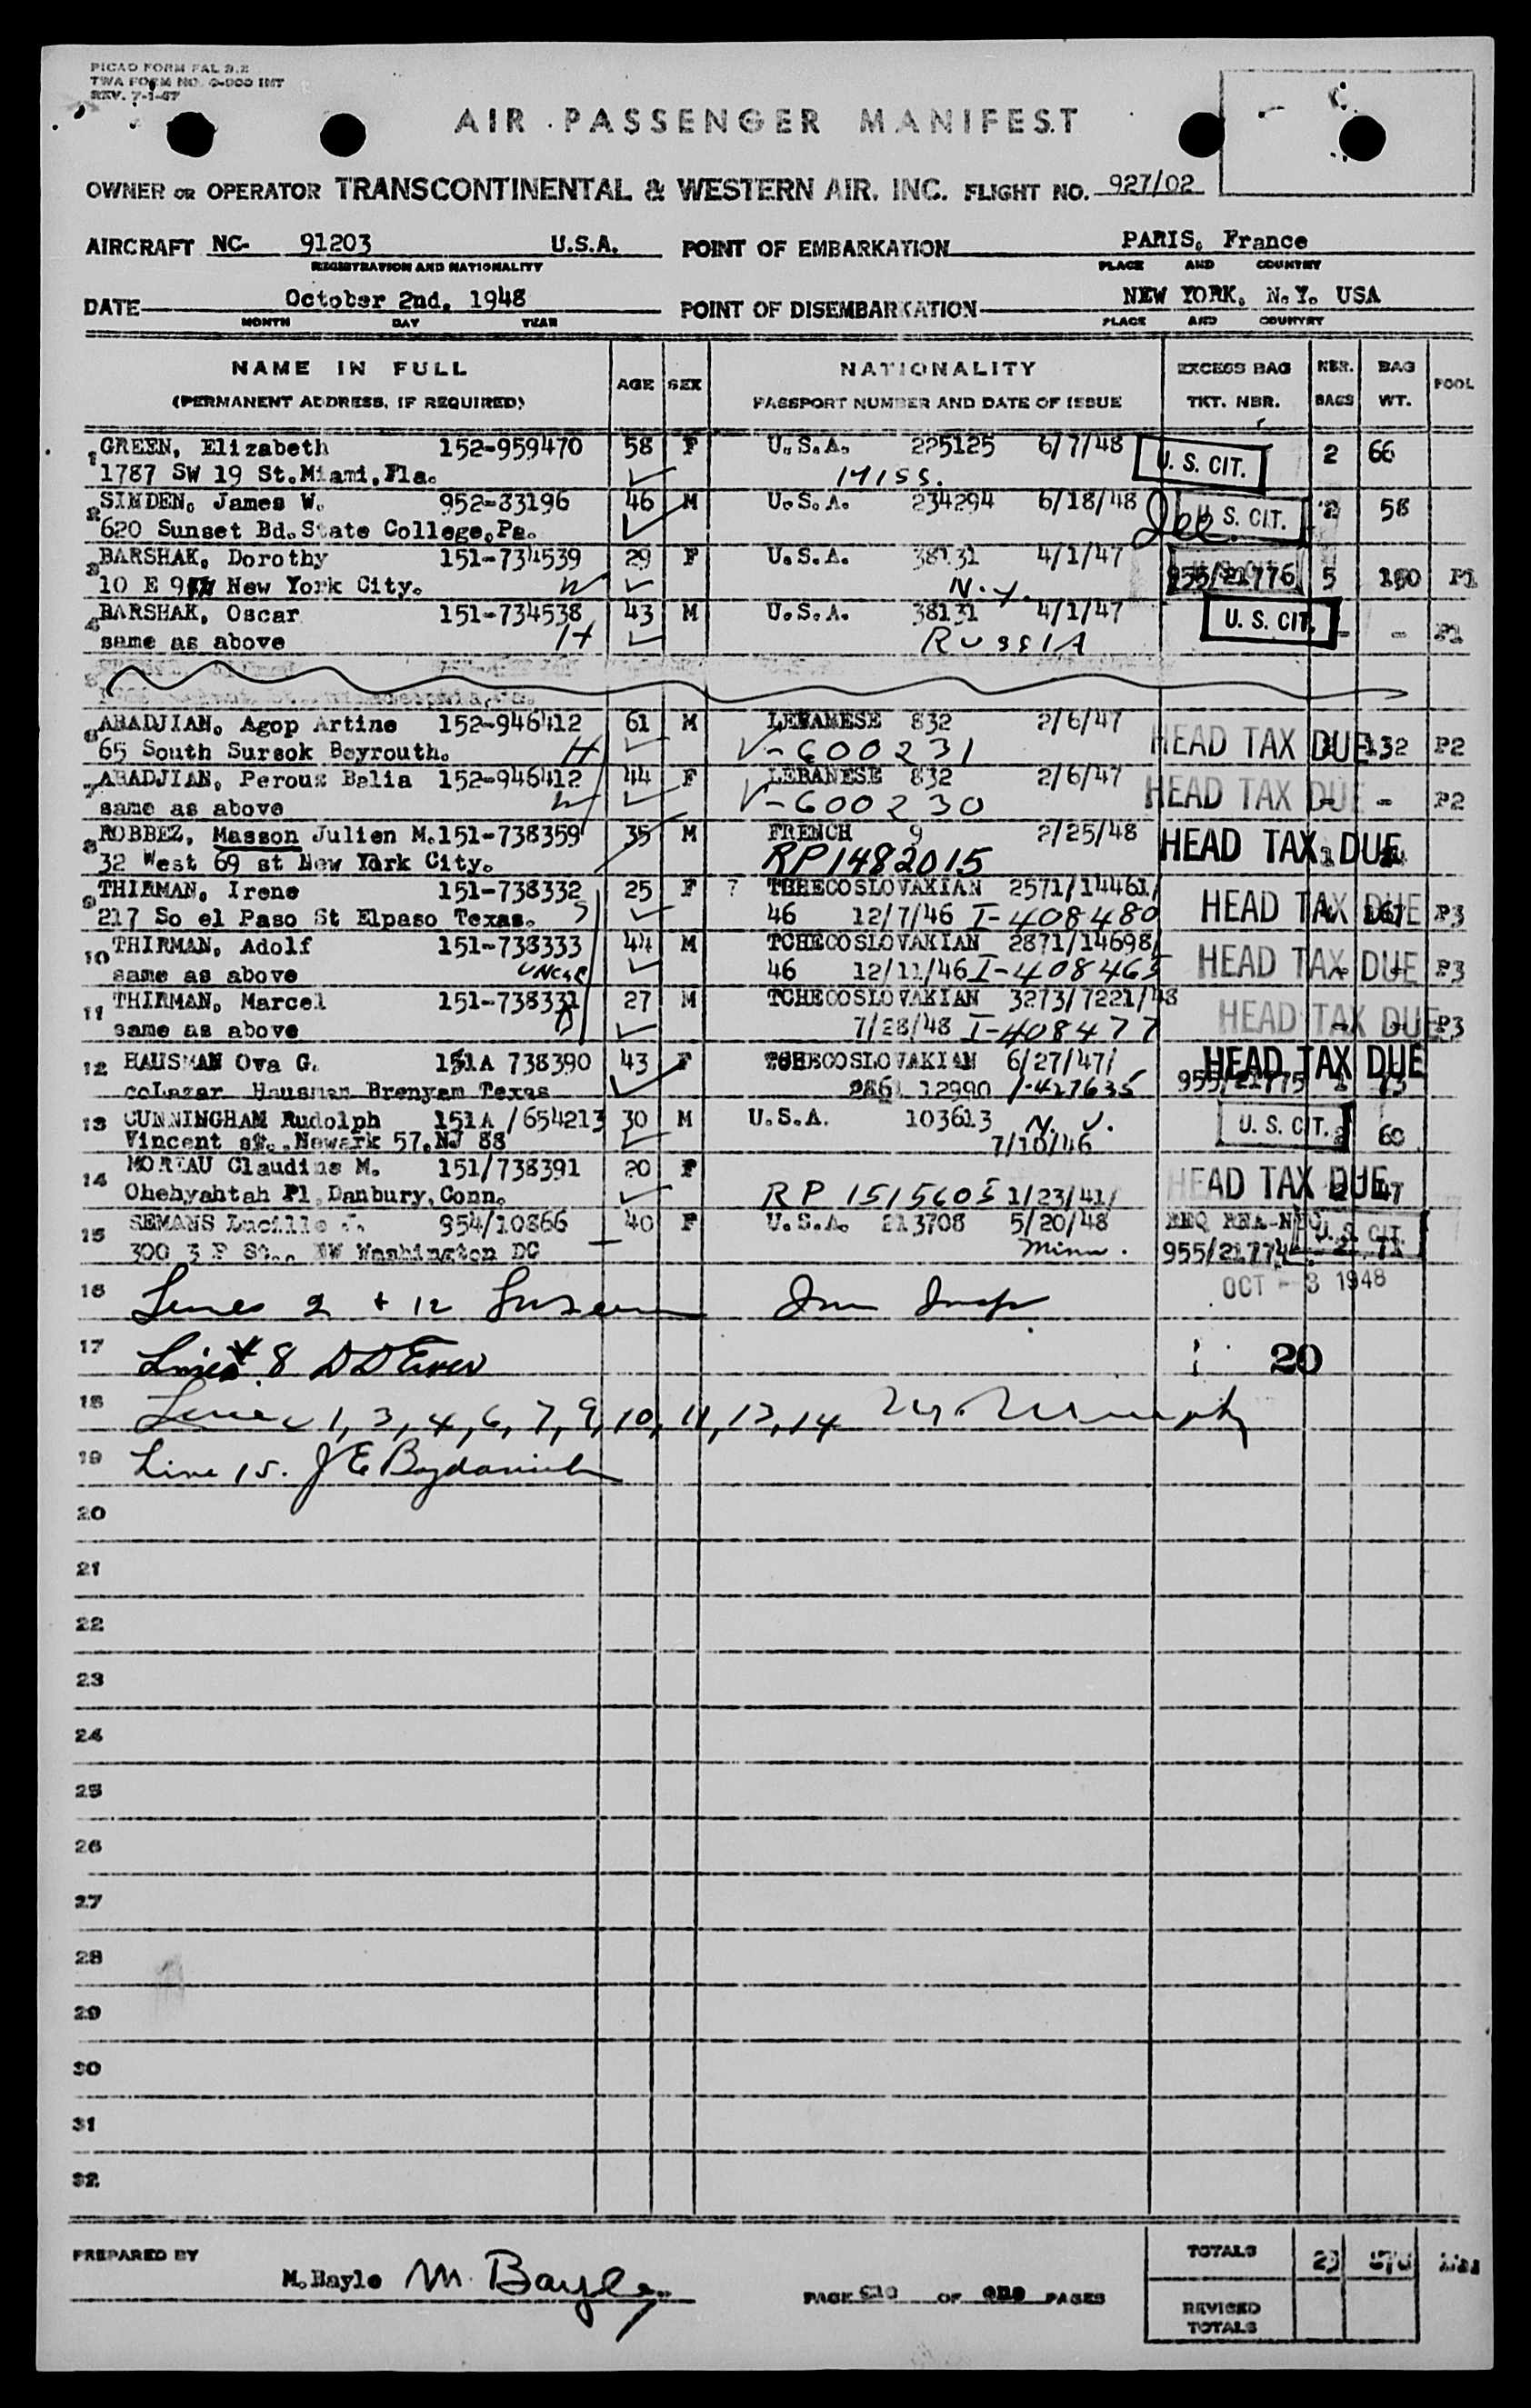 PICAO FORM FAL 2.2
TWA FORM NO. O-900 INT
REV. 7-1-47
AIR PASSENGER MANIFEST
OWNER OR OPERATOR TRANSCONTINENTAL & WESTERN AIR, INC. FLIGHT NO. 927/02
AIRCRAFT NC- 91203 U.S.A. POINT OF EMBARKATION PARIS, France
REGISTRATION AND NATIONALITY PLACE AND COUNTRY
DATE October 2nd, 1948 POINT OF DISEMBARKATION NEW YORK, N.Y. USA
MONTH DAY YEAR PLACE AND COUNTRY
NAME IN FULL AGE SEX NATIONALITY EXCESS BAG NBR. BAG POOL
(PERMANENT ADDRESS, IF REQUIRED) PASSPORT NUMBER AND DATE OF ISSUE TKT. NBR. BAGS WT.
1 GREEN, Elizabeth 152-959470 58 F U.S.A. 225125 6/7/48 U. S. CIT. 2 66
1787 SW 19 St.Miami,Fla. MISS.
2 SINDEN, James W. 952-83196 46 M U.S.A. 234294 6/18/48 U. S. CIT. 2 58
620 Sunset Bd.State College,Pa.
3 BARSHAK, Dorothy 151-734539 29 F U.S.A. 38131 4/1/47
10 E 9 New York City. W N.Y. 955/21776 5 P1
4 BARSHAK, Oscar 151-734538 43 M U.S.A. 38131 4/1/47 U. S. CIT. - - P1
same as above H RUSSIA
6 ABADJIAN, Agop Artine 152-946412 61 M LEBANESE 832 2/6/47 HEAD TAX DUE 132 P2
65 South Sursok Beyrouth. H V-600231
7 ABADJIAN, Perouz Balia 152-946412 44 F LEBANESE 832 2/6/47 HEAD TAX DUE - - P2
same as above W V-600230
8 ROBBEZ, Masson Julien M.151-738359 35 M FRENCH 9 2/25/48 HEAD TAX DUE
32 West 69 st New York City. RP1482015
9 THIRMAN, Irene 151-738332 25 F ? TCHECOSLOVAKIAN 2571/14461/ HEAD TAX DUE P3
217 So el Paso St Elpaso Texas. S 46 12/7/46 I-408480
10 THIRMAN, Adolf 151-738333 44 M TCHECOSLOVAKIAN 2871/14698/ HEAD TAX DUE P3
same as above UNCLE 46 12/11/46 I-408465
11 THIRMAN, Marcel 151-738331 27 M TCHECOSLOVAKIAN 3273/7221/48 HEAD TAX DUE P3
same as above B 7/28/48 I-408477
12 HAUSMAN Ova G. 151A 738390 43 F TCHECOSLOVAKIAN 6/27/47/ HEAD TAX DUE
coLazar Hausman Brenyam Texas 286 12990 I-427635 955/21775 1 73
13 CUNNINGHAM Rudolph 151A/654213 30 M U.S.A. 103613 N. J. U. S. CIT. 2 60
Vincent st., Newark 57.NJ 88 7/10/46
14 MOREAU Claudine M. 151/738391 20 F HEAD TAX DUE 47
Ohehyahtah Pl,Danbury,Conn. RP 1515605 1/23/41/
15 SEMANS Lucille J. 954/10866 40 F U.S.A. 213708 5/20/48 U. S. CIT.
300 3 F St., NW Washington DC Minn. 955/21774
16 Lines 2 + 12 Imm Insp OCT - 3 1948
17 Line 8 20
18 Lines 1, 3, 4, 6, 7, 9, 10, 11, 13, 14 Murphy
19 Line 15. J E
20
21
22
23
24
25
26
27
28
29
30
31
32
PREPARED BY M.Bayle M. Bayle PAGE one OF one PAGES TOTALS
REVISED TOTALS